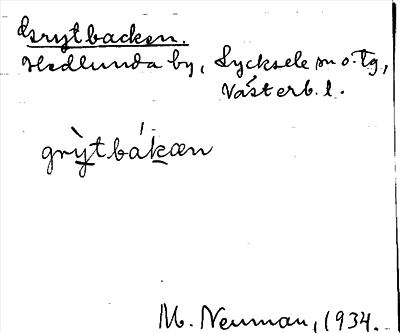 Grytbacken.
Hedlunda by, Lycksele sn o. tg,
Västerb. l.
grỳtbákæn
M. Neuman, 1934.